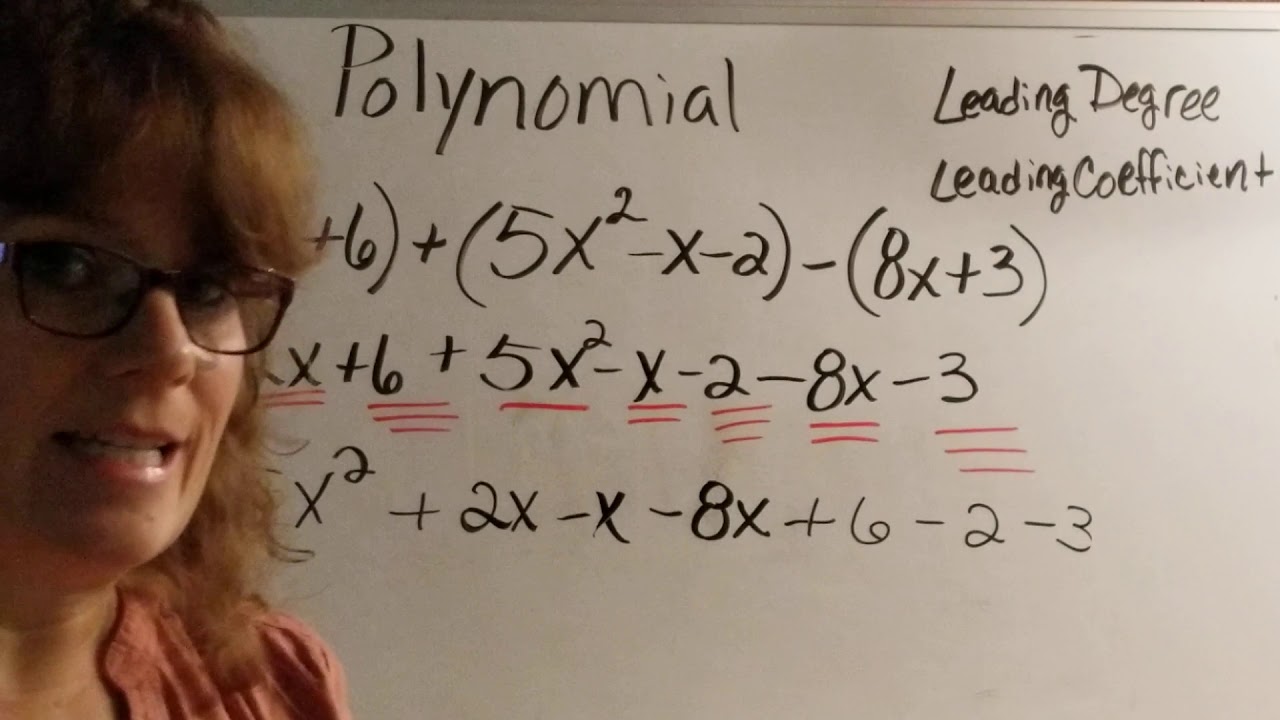 Polynomial
Leading Degree
Leading Coefficient
+6) + (5x² - x - 2) - (8x + 3)
x + 6 + 5x² - x - 2 - 8x - 3
x² + 2x - x - 8x + 6 - 2 - 3